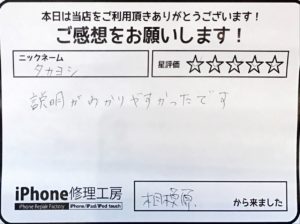 本日は当店をご利用頂きありがとうございます！
ご感想をお願いします！
ニックネーム
タカヨシ
星評価 ☆☆☆☆☆
説明がわかりやすかったです
iPhone修理工房
iPhone Repair Factory iPhone/iPad/iPod touch
相模原 から来ました